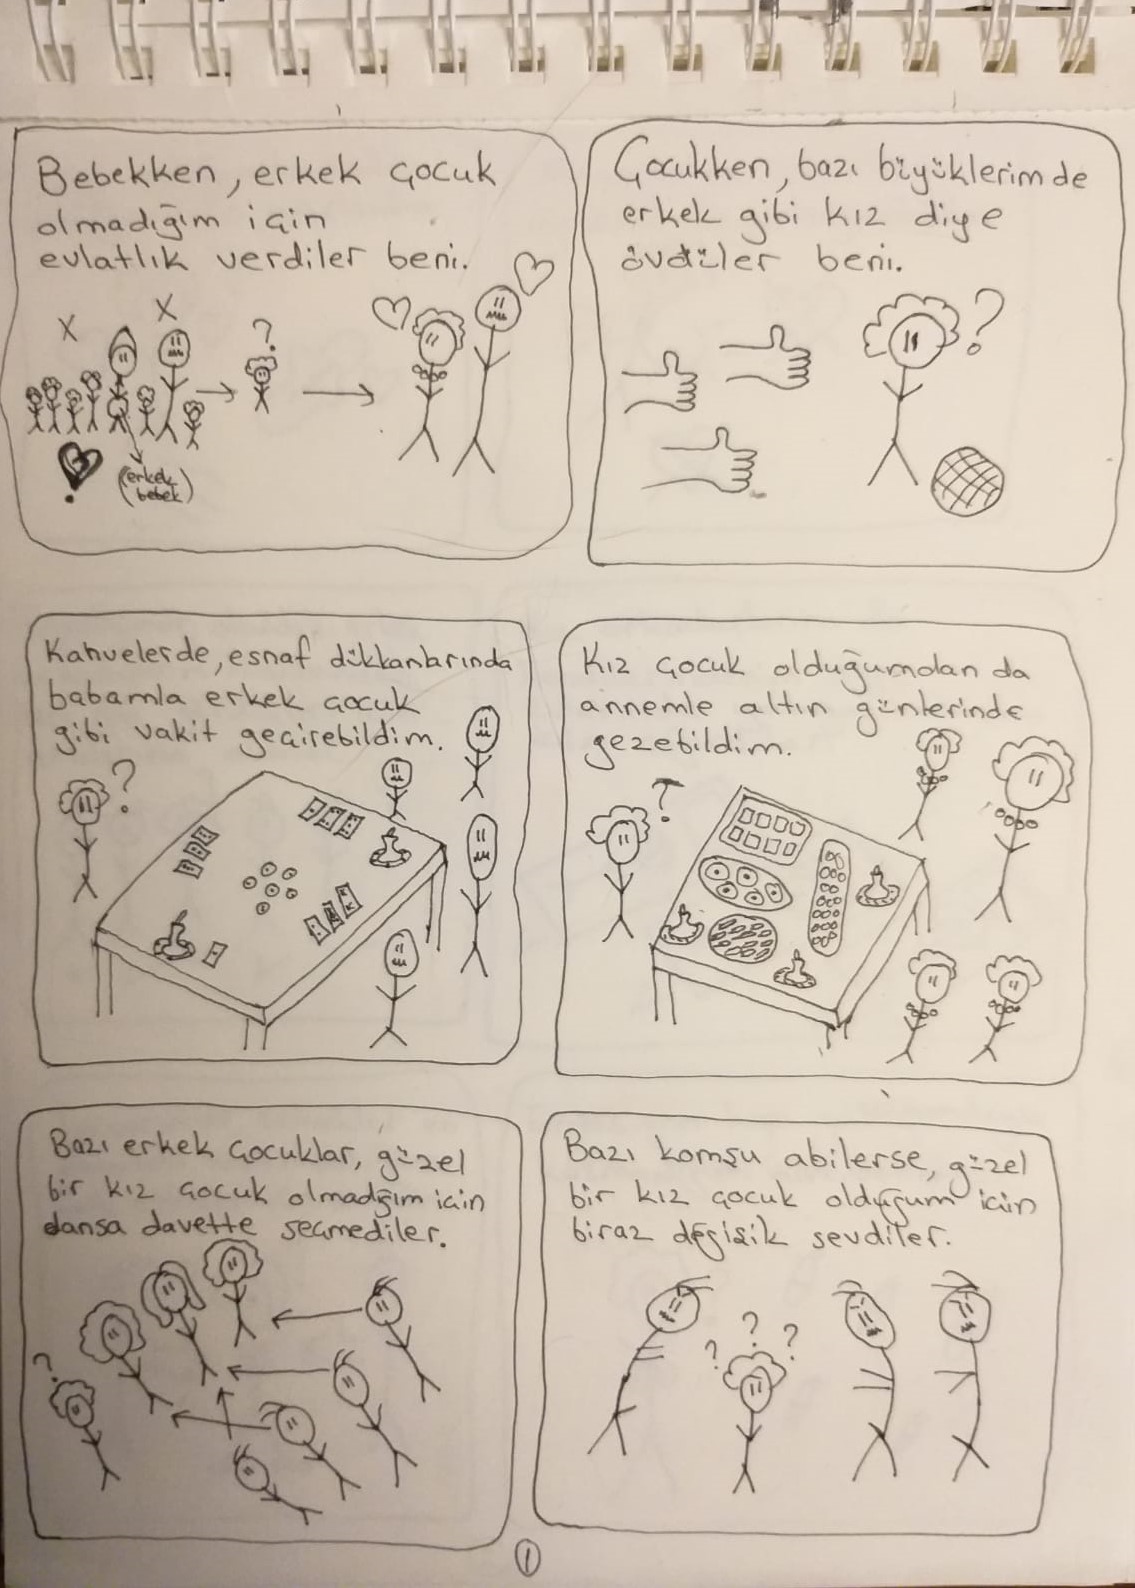 Bebekken, erkek çocuk
olmadığım için
evlatlık verdiler beni.
X
X
?
(erkek
bebek)
Çocukken, bazı büyüklerim de
erkek gibi kız diye
övdüler beni.
?
Kahvelerde, esnaf dükkanlarında
babamla erkek çocuk
gibi vakit geçirebildim.
?
Kız çocuk olduğumdan da
annemle altın günlerinde
gezebildim.
?
Bazı erkek çocuklar, güzel
bir kız çocuk olmadığım için
dansa davette seçmediler.
?
Bazı komşu abilerse, güzel
bir kız çocuk olduğum için
biraz değişik sevdiler.
? ? ?
1